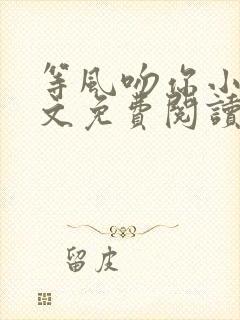 等風吻你小
文免費閱讀
留皮